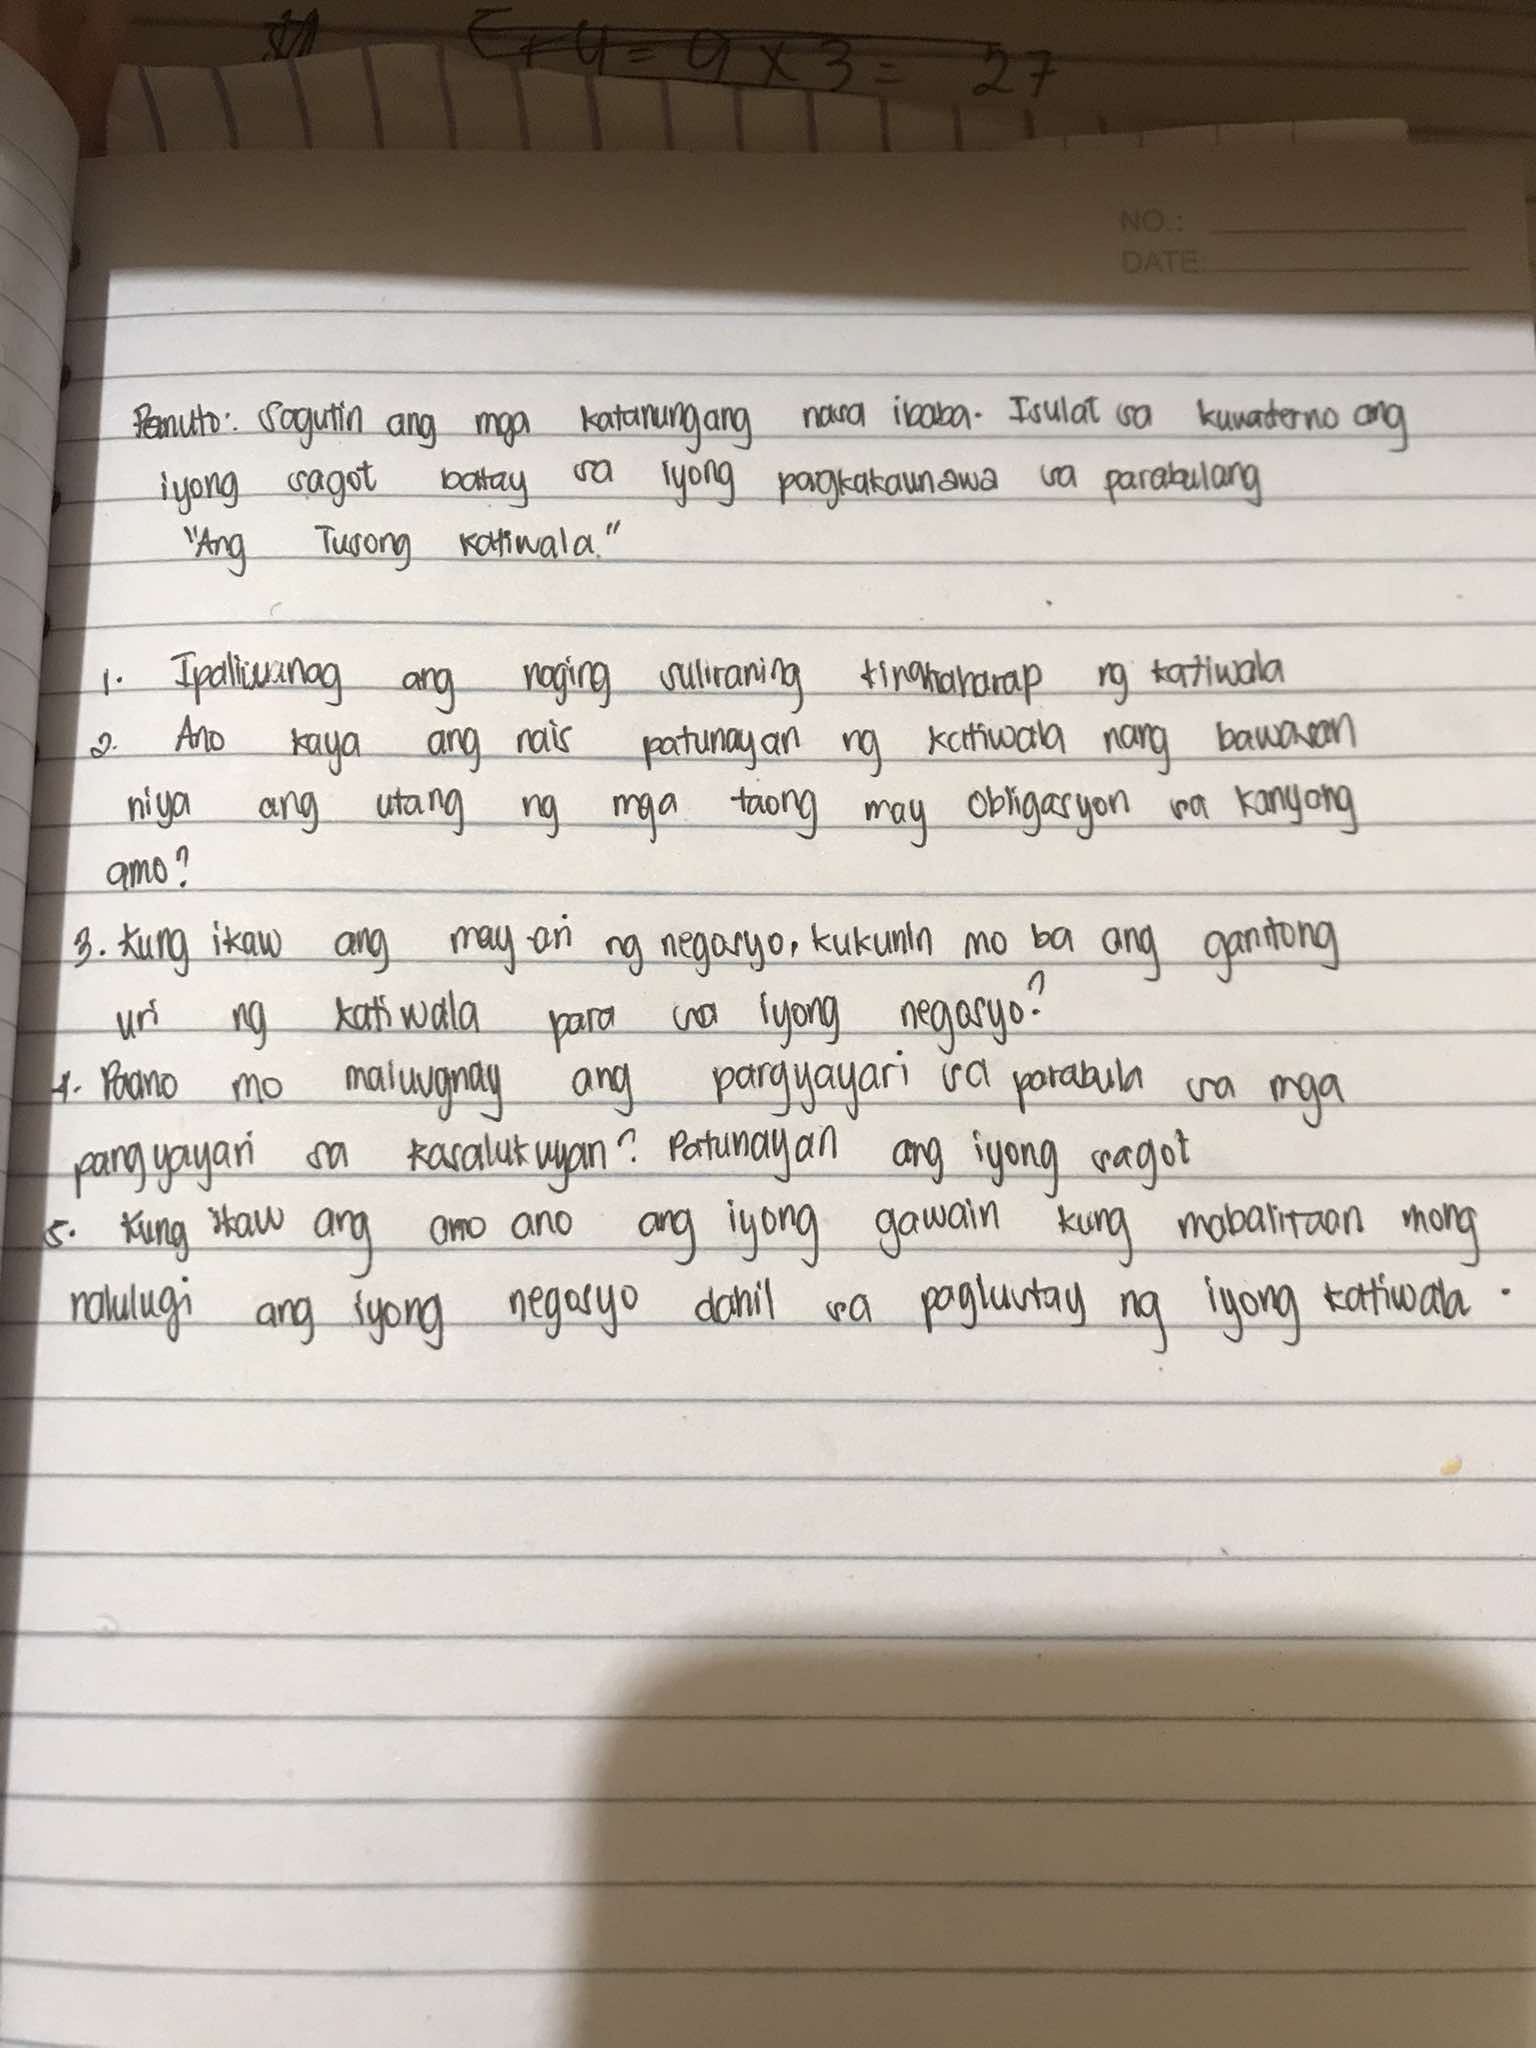 +4= 9 x 3 = 27
NO.:
DATE:
Panuto: Sagutin ang mga katanungang nasa ibaba. Isulat sa kuwaderno ang
iyong sagot batay sa iyong pagkakaunawa sa parabulang
"Ang Tusong katiwala."
1. Ipaliwanag ang naging suliraning kinakaharap ng katiwala
2. Ano kaya ang nais patunayan ng katiwala nang bawasan
niya ang utang ng mga taong may obligasyon sa kanyang
amo?
3. Kung ikaw ang may-ari ng negosyo, kukunin mo ba ang ganitong
uri ng katiwala para sa iyong negosyo?
4. Paano mo maiuugnay ang pargyayari sa parabula sa mga
pangyayari sa kasalukuyan? Patunayan ang iyong sagot
5. Kung ikaw ang amo ano ang iyong gawain kung mabalitaan mong
nalulugi ang iyong negosyo dahil sa paglustay ng iyong katiwala.